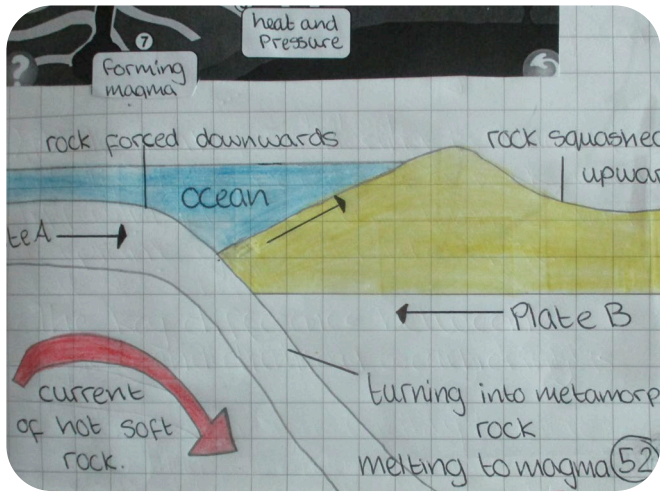 heat and
Pressure
7
forming
magma
?
rock forced downwards
rock squashed
upwar
ocean
te A
Plate B
current
of hot soft
rock.
turning into metamorp
rock
melting to magma 52